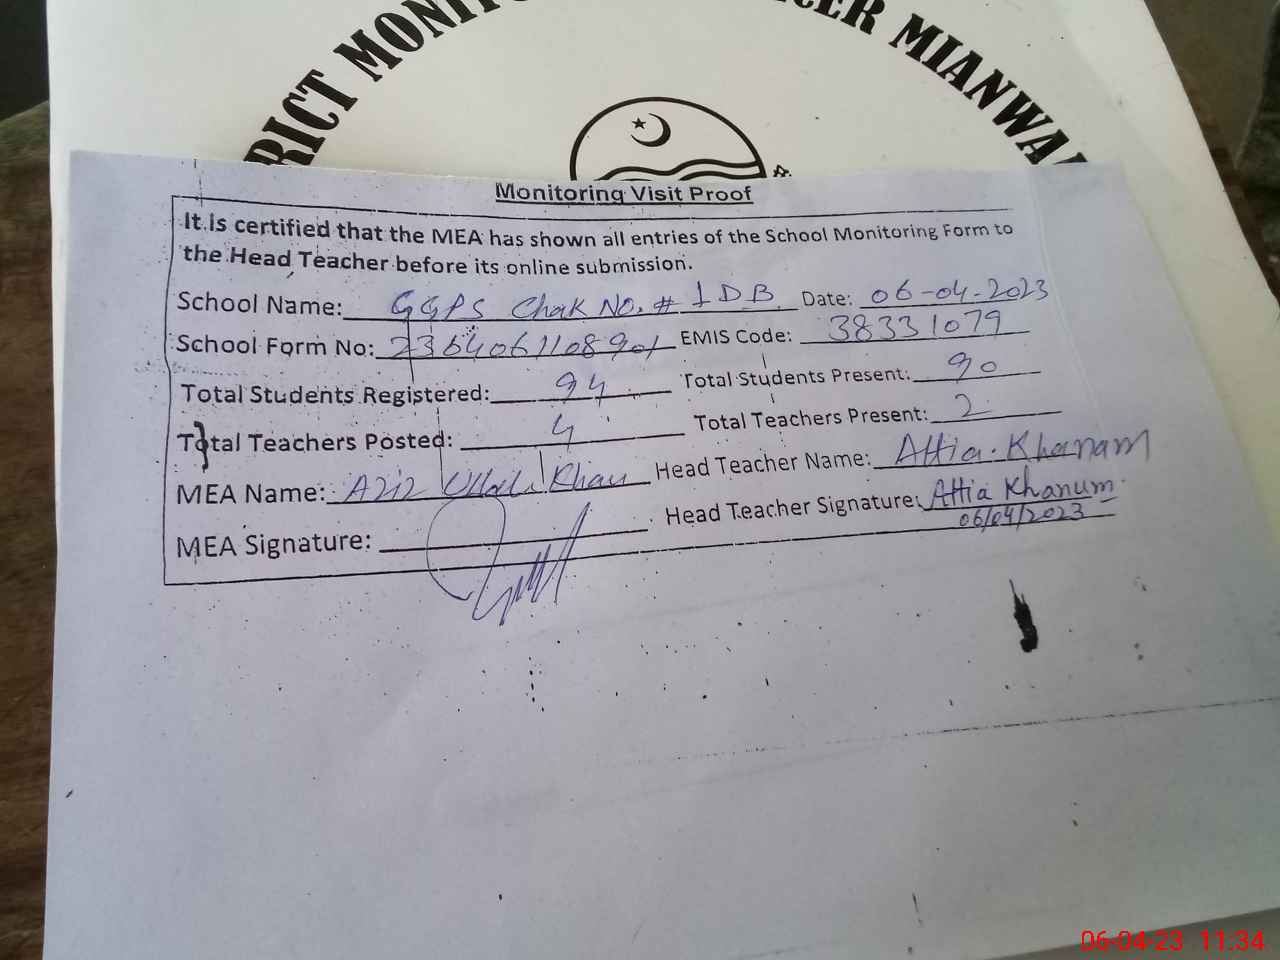 RICT MONITO CER MIANWA
Monitoring Visit Proof
It is certified that the MEA has shown all entries of the School Monitoring Form to
the Head Teacher before its online submission.
School Name: GGPS Chak No. # 1 DB Date: 06-04-2023
School Form No: EMIS Code: 38331079
Total Students Registered: 94 Total Students Present: 90
Total Teachers Posted: 4 Total Teachers Present: 2
MEA Name: Aziz Ullah Khan Head Teacher Name: Attia Khanam
MEA Signature: Head Teacher Signature: Attia Khanum
06/04/2023
06-04-23 11:34